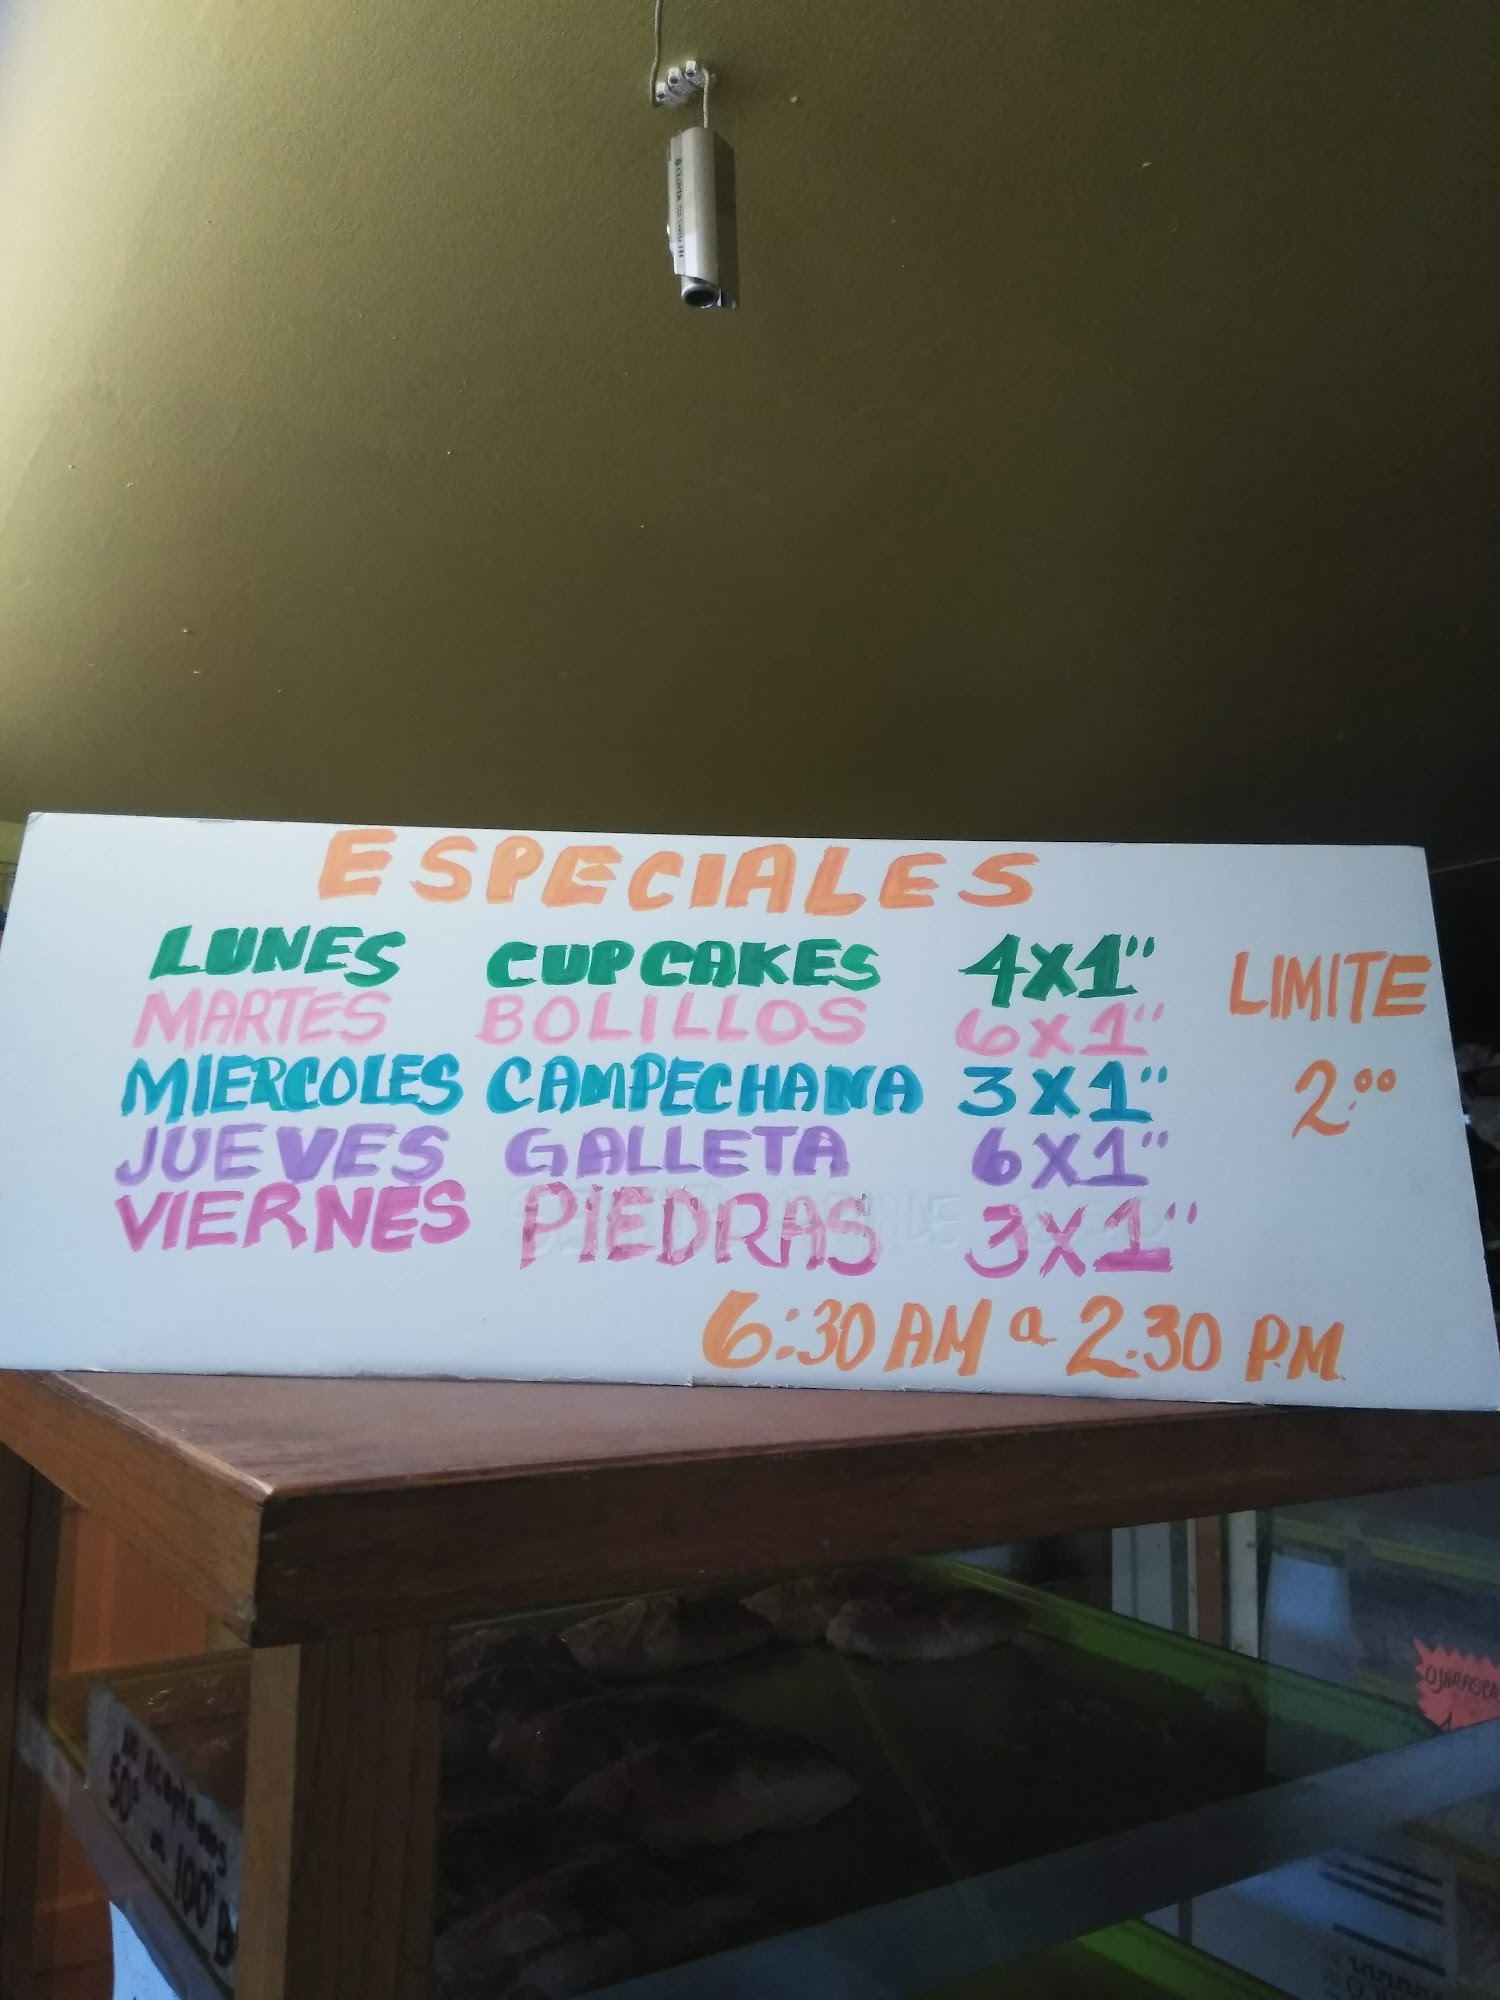 ESPECIALES
LUNES CUPCAKES 4X1"
MARTES BOLILLOS 6X1"
MIERCOLES CAMPECHANA 3X1"
JUEVES GALLETA 6X1"
VIERNES PIEDRAS 3X1"
LIMITE
2.00
6:30 AM a 2:30 P.M.
OJARASCA
NO Aceptamos
50 100